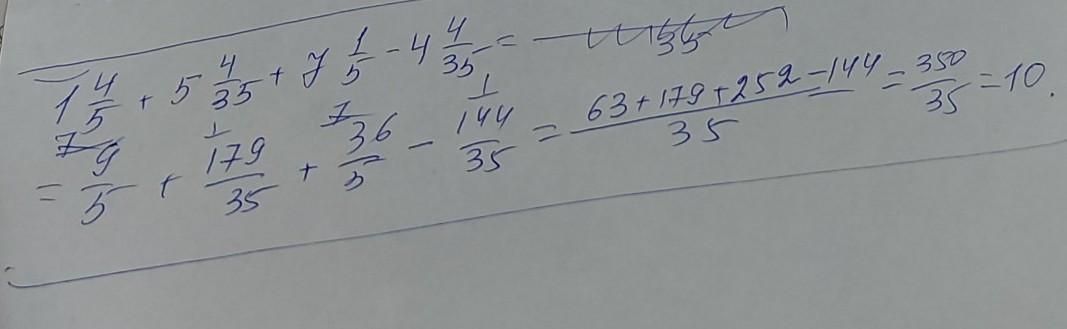 1 4/5 + 5 4/35 + 7 1/5 - 4 4/35 =
= 9/5 + 179/35 + 36/5 - 144/35 = 63+179+252-144/35 = 350/35 = 10.